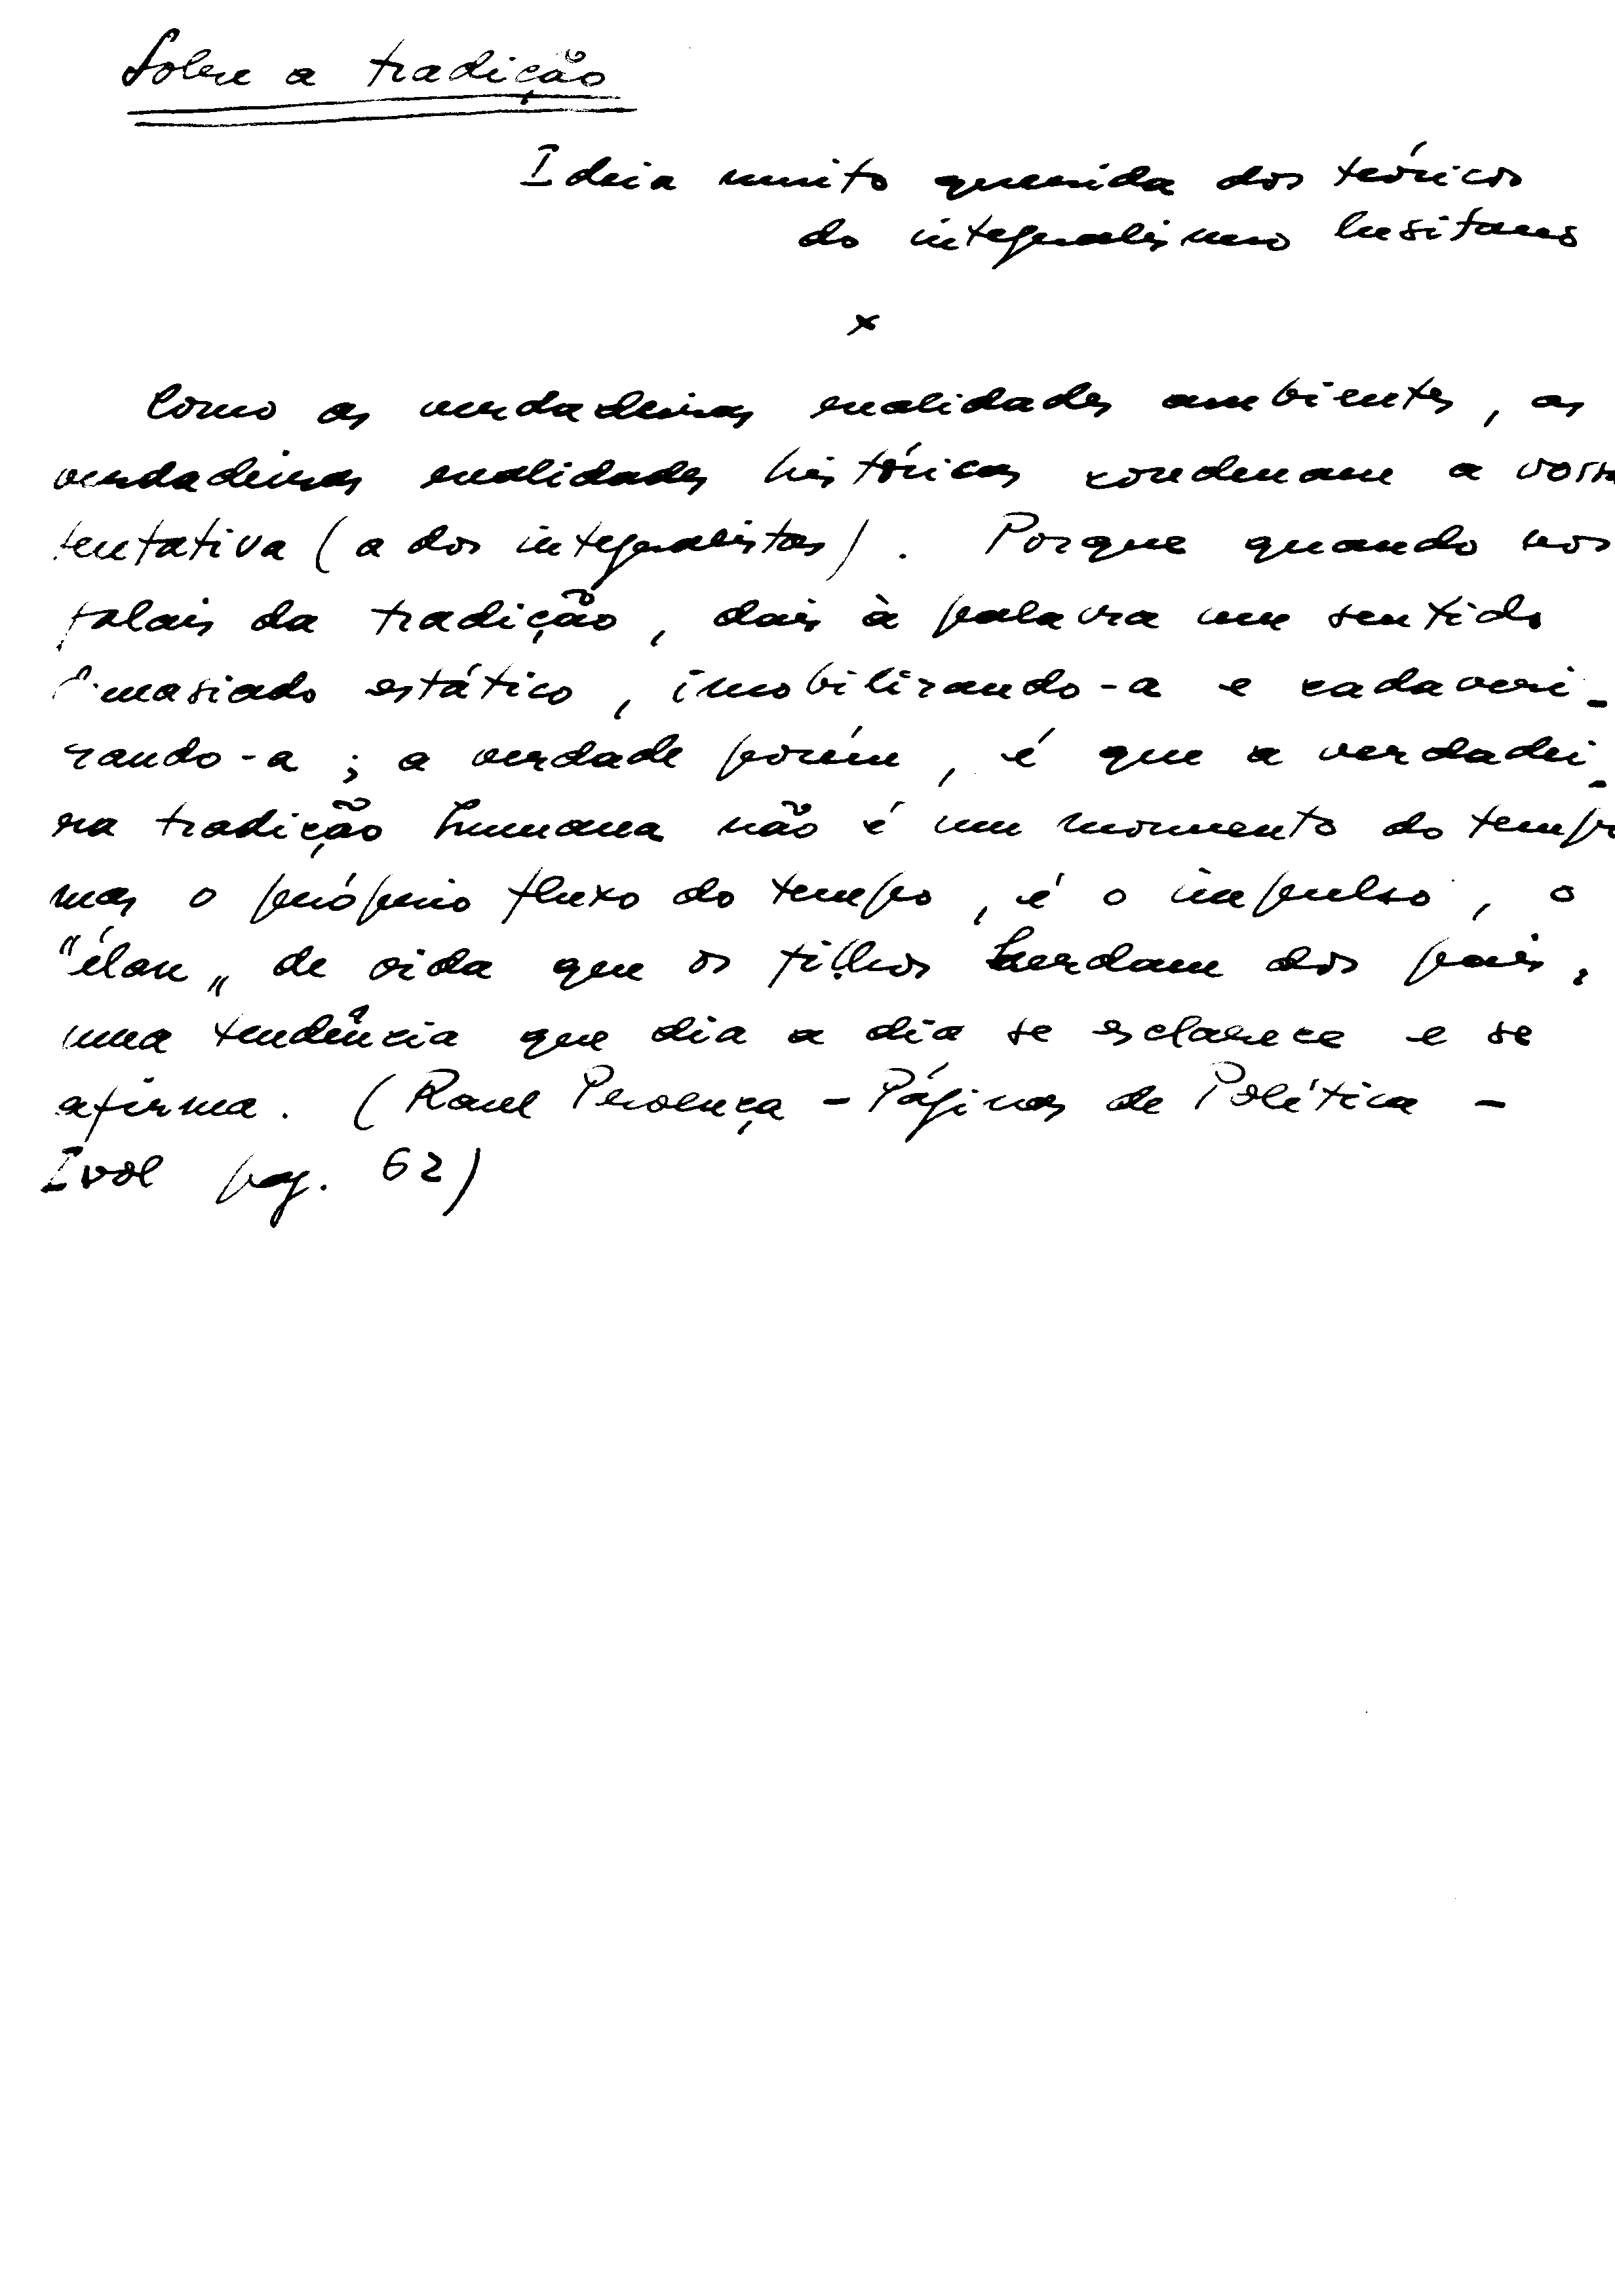 Sobre a tradição
Ideia muito querida dos teóricos
do integralismo lusitano
x
Como as verdadeiras realidades ambientes, as
verdadeiras realidades históricas condenam a vossa
tentativa (a dos integralistas). Porque quando nos
falais da tradição, dais à palavra um sentido
demasiado estático, imobilizando-a e cadaveri-
zando-a; a verdade porém, é que a verdadei-
ra tradição humana não é um momento do tempo
mas o próprio fluxo do tempo, é o impulso, o
"élan" de vida que os filhos herdam dos pais,
uma tendência que dia a dia se esclarece e se
afirma. (Raul Proença - Páginas de Política -
I vol pag. 62)